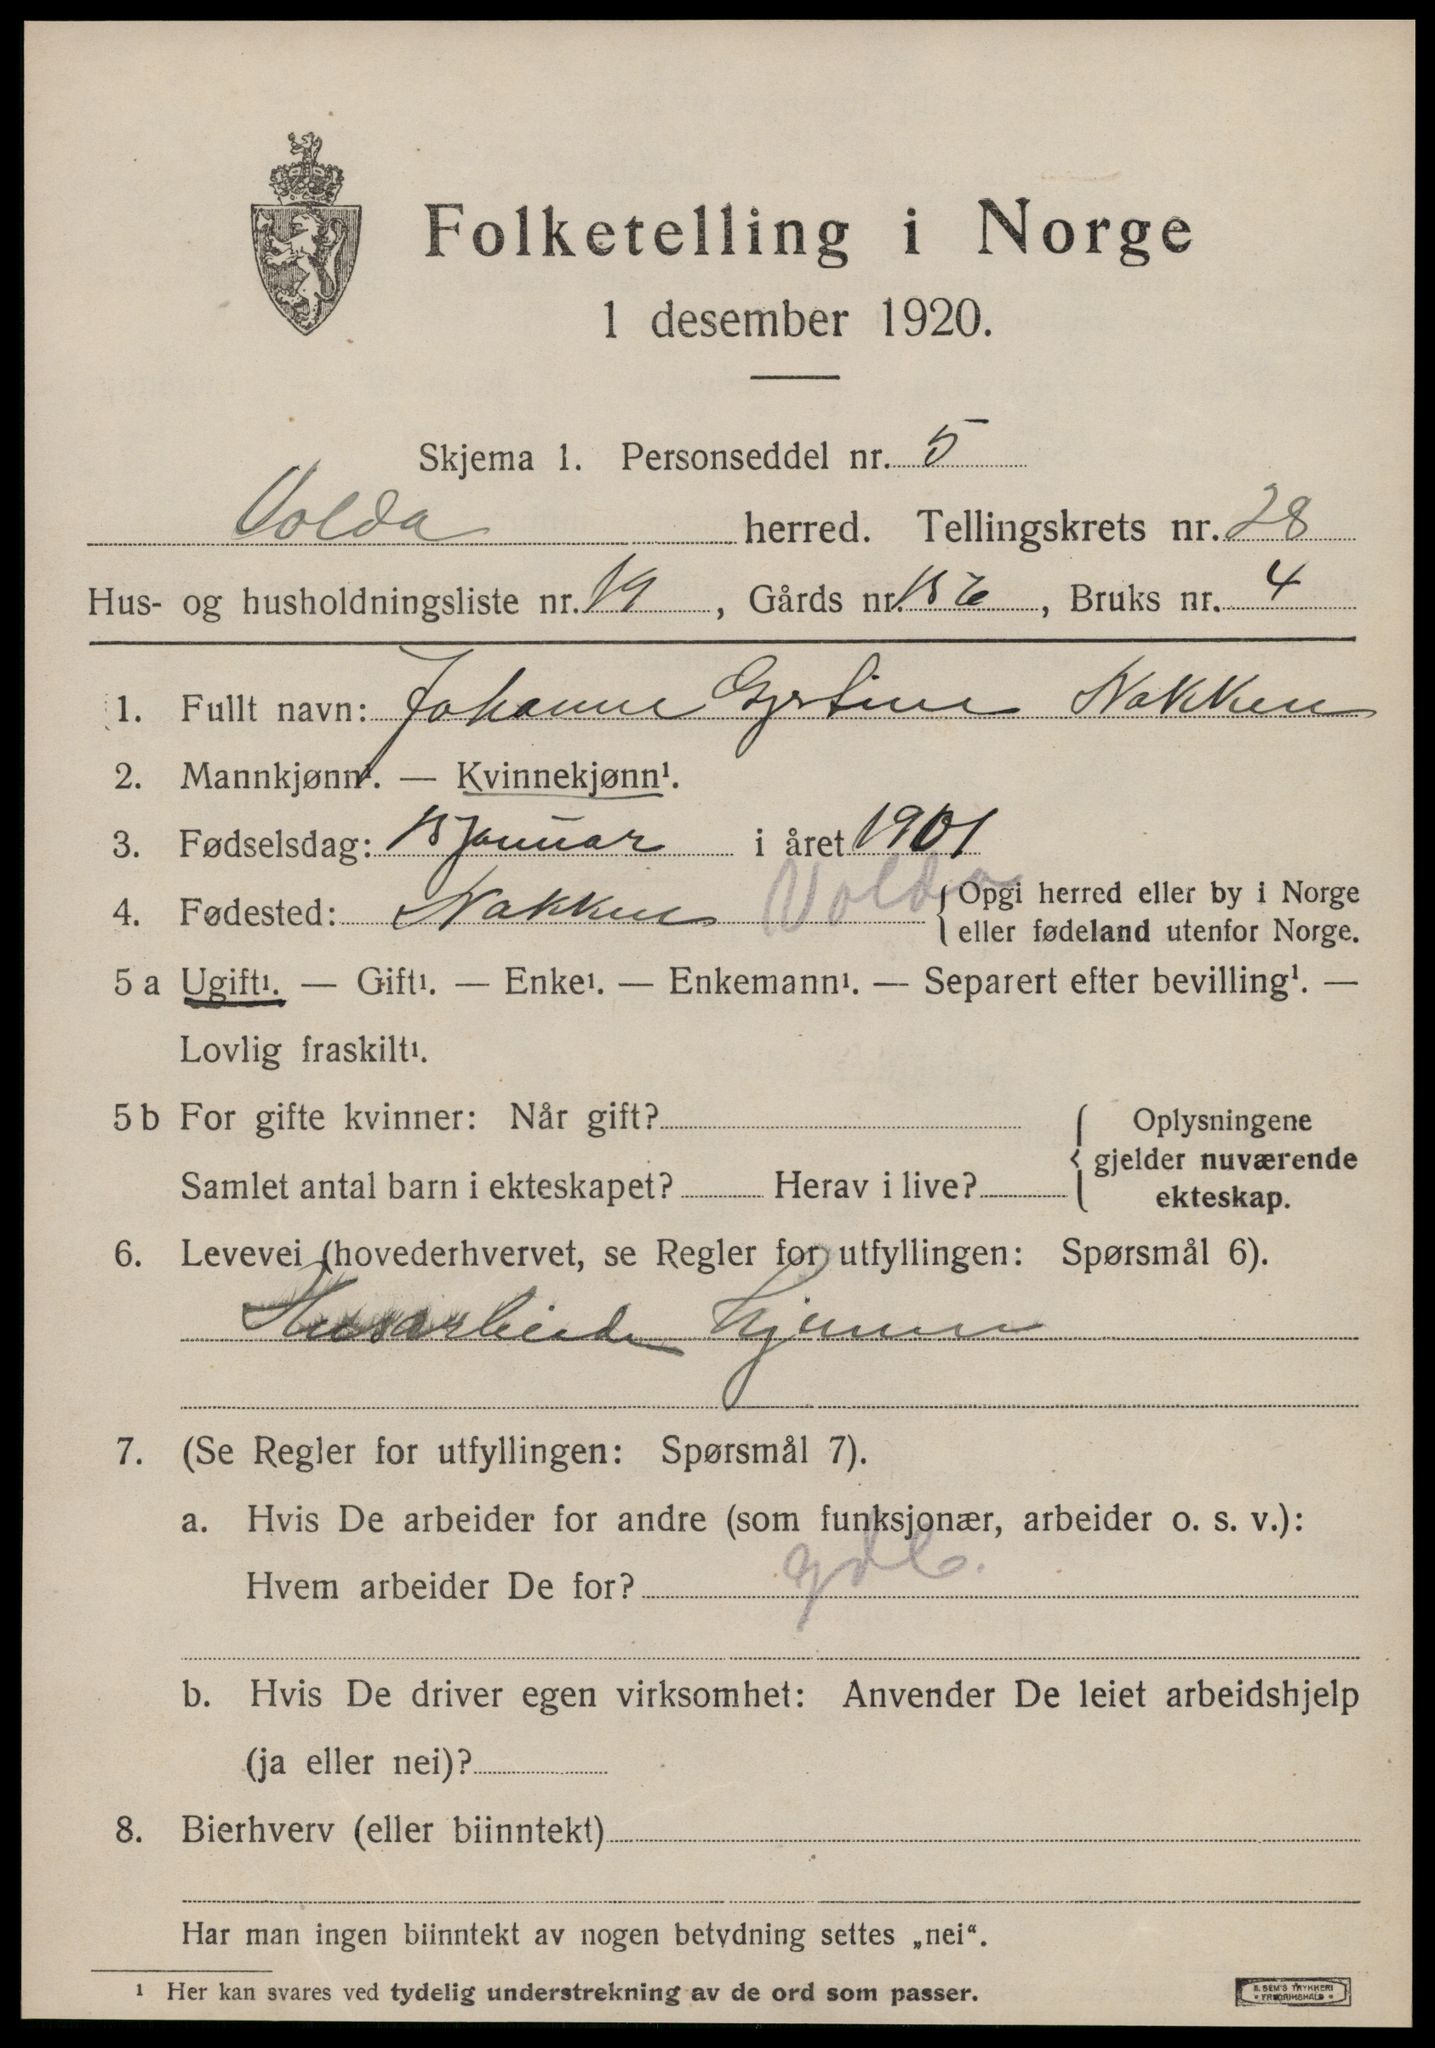 Folketelling i Norge
1 desember 1920.
Skjema 1. Personseddel nr. 5
Volda herred. Tellingskrets nr. 28
Hus- og husholdningsliste nr. 19, Gårds nr. 156, Bruks nr. 4
1. Fullt navn: Johanne Nakken
2. Mannkjønn¹. — Kvinnekjønn¹.
3. Fødselsdag: 15 januar i året 1901
4. Fødested: Nakken Volda { Opgi herred eller by i Norge
eller fødeland utenfor Norge.
5 a Ugift¹. — Gift¹. — Enke¹. — Enkemann¹. — Separert efter bevilling¹. —
Lovlig fraskilt¹.
5 b For gifte kvinner: Når gift?
Samlet antal barn i ekteskapet? Herav i live?
{ Oplysningene
gjelder nuværende
ekteskap.
6. Levevei (hovederhvervet, se Regler for utfyllingen: Spørsmål 6).
Husarbeide hjemme
7. (Se Regler for utfyllingen: Spørsmål 7).
a. Hvis De arbeider for andre (som funksjonær, arbeider o. s. v.):
Hvem arbeider De for?
b. Hvis De driver egen virksomhet: Anvender De leiet arbeidshjelp
(ja eller nei)?
8. Bierhverv (eller biinntekt)
Har man ingen biinntekt av nogen betydning settes „nei“.
¹ Her kan svares ved tydelig understrekning av de ord som passer.
E. SEM'S TRYKKERI
FREDRIKSHALD